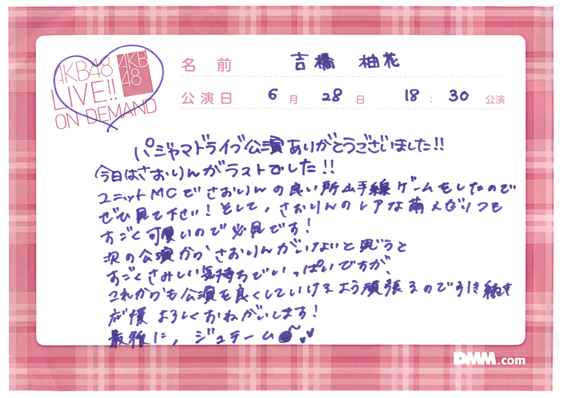 AKB48
LIVE!!
ON DEMAND
AKB
48
名前 吉橋 柚花
公演日 6月 28日 18:30公演
パジャマドライブ公演ありがとうございました!!
今日はさおりんがラストでした!!
ユニットMCでさおりんの良い所山手線ゲームをしたので
ぜひ見て下さい!そして、さおりんのレアな前人だりつも
すごく可愛いので必見です!
次の公演からさおりんがいないと思うと
すごくさみしい気持ちでいっぱいですが、
これからも公演を良くしていけるよう頑張るので引き続き
応援よろしくおねがいします!
最後に、ジュテーム
DMM.com